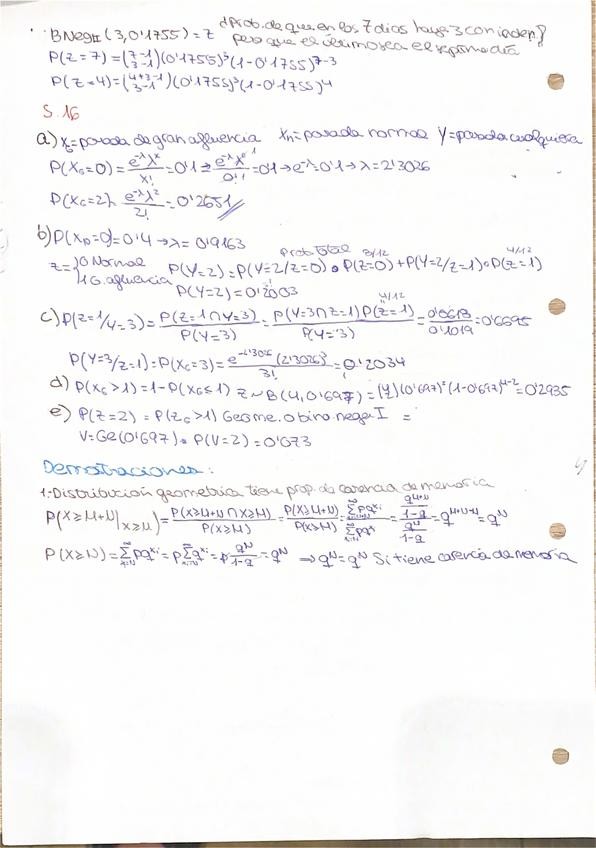 BNegII (3, 0'1755) = Z ¿Prob. de que en los 7 días haya 3 con inciden?
pero que el último sea el séptimo día
P(Z=7) = (7-1 3-1)(0'1755)³(1-0'1755)⁷⁻³
P(Z=4) = (4+3-1 3-1)(0'1755)³(1-0'1755)⁴
S.16
a) X_G = parada de gran afluencia X_n = parada normal Y = parada cualquiera
P(X_G=0) = e^-λ λ^x / x! = 0'1 → e^-λ λ^0 / 0! = 0'1 → e^-λ = 0'1 → λ = 2'3026
P(X_G=2) = e^-λ λ² / 2! = 0'2651
b) P(X_n=0) = 0'4 → λ = 0'9163
Prob total 8/12 4/12
Z = { 0 Normal 1 G. afluencia P(Y=2) = P(Y=2/Z=0) · P(Z=0) + P(Y=2/Z=1) · P(Z=1)
P(Y=2) = 0'2003
c) P(Z=1/Y=3) = P(Z=1∩Y=3) / P(Y=3) = P(Y=3∩Z=1)P(Z=1) 4/12 / P(Y=3) = 0'0678 / 0'1019 = 0'6695
P(Y=3/Z=1) = P(X_G=3) = e^-2'3026 (2'3026)³ / 3! = 0'2034
d) P(X_G>1) = 1-P(X_G≤1) Z ~ B(4, 0'697) = (4 2)(0'697)²(1-0'697)⁴⁻² = 0'2935
e) P(Z=2) = P(Z_G>1) Geome. o bino. nega. I =
V = Ge(0'697) · P(V=2) = 0'073
Demostraciones:
1.-Distribución geometrica tiene prop. de carencia de memoria
P(X≥M+N | X≥M) = P(X≥M+N ∩ X≥M) / P(X≥M) = P(X≥M+N) / P(X≥M) = Σpq^xi / Σpq^xi = q^M+N / 1-q / q^M / 1-q = q^M+N-M = q^N
P(X≥N) = Σpq^xi = pΣq^xi = p q^N / 1-q = q^N → q^N = q^N Si tiene carencia de memoria